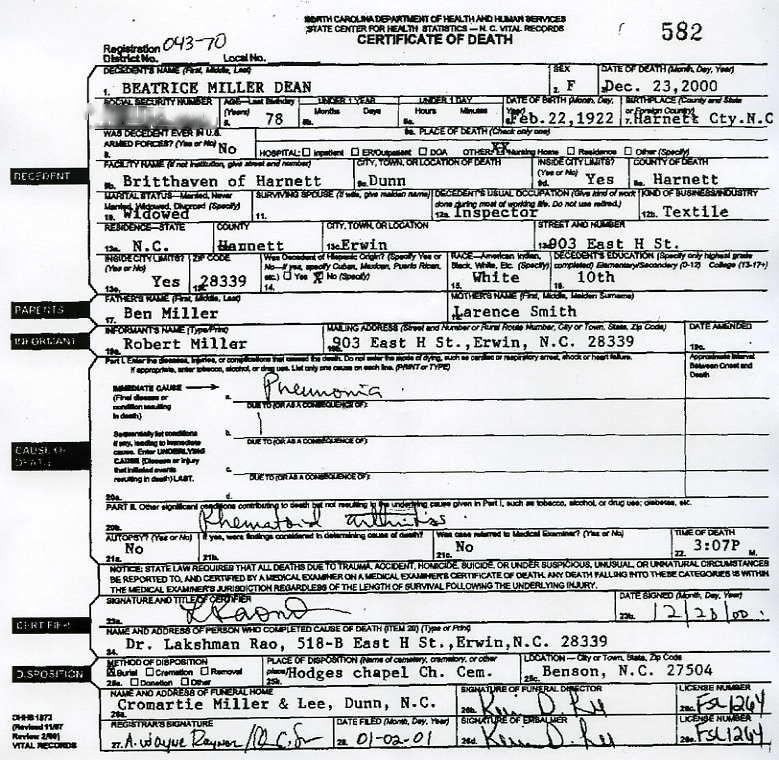 NORTH CAROLINA DEPARTMENT OF HEALTH AND HUMAN SERVICES
STATE CENTER FOR HEALTH STATISTICS — N. C. VITAL RECORDS
CERTIFICATE OF DEATH
582
Registration District No. 043-70 Local No.
DECEDENT'S NAME (First, Middle, Last) SEX DATE OF DEATH (Month, Day, Year)
1. BEATRICE MILLER DEAN 2. F Dec. 23,2000
SOCIAL SECURITY NUMBER AGE—Last Birthday (Years) UNDER 1 YEAR UNDER 1 DAY DATE OF BIRTH (Month, Day, Year) BIRTHPLACE (County and State or Foreign Country)
78 Months Days Hours Minutes Feb.22,1922 Harnett Cty.N.C
WAS DECEDENT EVER IN U.S. ARMED FORCES? (Yes or No) 9a. PLACE OF DEATH (Check only one)
8. No HOSPITAL: Inpatient ER/Outpatient DOA OTHER: XX Nursing Home Residence Other (Specify)
FACILITY NAME (If not institution, give street and number) CITY, TOWN, OR LOCATION OF DEATH INSIDE CITY LIMITS? (Yes or No) COUNTY OF DEATH
DECEDENT
9b. Britthaven of Harnett 9c. Dunn 9d. Yes 9e. Harnett
MARITAL STATUS—Married, Never Married, Widowed, Divorced (Specify) SURVIVING SPOUSE (If wife, give maiden name) DECEDENT'S USUAL OCCUPATION (Give kind of work done during most of working life. Do not use retired.) KIND OF BUSINESS/INDUSTRY
10. Widowed 11. 12a. Inspector 12b. Textile
RESIDENCE—STATE COUNTY CITY, TOWN, OR LOCATION STREET AND NUMBER
13a. N.C. Harnett 13c. Erwin 903 East H St.
INSIDE CITY LIMITS? (Yes or No) ZIP CODE Was Decedent of Hispanic Origin? (Specify Yes or No—If yes, specify Cuban, Mexican, Puerto Rican, etc.) Yes X No (Specify) RACE—American Indian, Black, White, Etc. (Specify) DECEDENT'S EDUCATION (Specify only highest grade completed) Elementary/Secondary (0-12) College (13-17+)
13e. Yes 28339 14. 15. White 16. 10th
FATHER'S NAME (First, Middle, Last) MOTHER'S NAME (First, Middle, Maiden Surname)
PARENTS
17. Ben Miller Larence Smith
INFORMANT'S NAME (Type/Print) MAILING ADDRESS (Street and Number or Rural Route Number, City or Town, State, Zip Code) DATE AMENDED
INFORMANT
19a. Robert Miller 903 East H St.,Erwin, N.C. 28339 19c.
Part I. Enter the diseases, injuries, or complications that caused the death. Do not enter the mode of dying, such as cardiac or respiratory arrest, shock or heart failure.
If appropriate, enter tobacco, alcohol, or drug use. List only one cause on each line. (PRINT or TYPE)
Approximate Interval Between Onset and Death
IMMEDIATE CAUSE (Final disease or condition resulting in death) a. Pneumonia
DUE TO (OR AS A CONSEQUENCE OF):
Sequentially list conditions if any, leading to immediate cause. Enter UNDERLYING CAUSE (Disease or injury that initiated events resulting in death) LAST.
b.
DUE TO (OR AS A CONSEQUENCE OF):
CAUSE OF DEATH
c.
DUE TO (OR AS A CONSEQUENCE OF):
20a. d.
PART II. Other significant conditions contributing to death but not resulting in the underlying cause given in Part I, such as tobacco, alcohol, or drug use; diabetes, etc.
20b. Rhematoid arthritis
AUTOPSY? (Yes or No) If yes, were findings considered in determining cause of death? Was case referred to Medical Examiner? (Yes or No) TIME OF DEATH
21a. No 21b. 21c. No 22. 3:07P M.
NOTICE: STATE LAW REQUIRES THAT ALL DEATHS DUE TO TRAUMA, ACCIDENT, HOMICIDE, SUICIDE, OR UNDER SUSPICIOUS, UNUSUAL, OR UNNATURAL CIRCUMSTANCES
BE REPORTED TO, AND CERTIFIED BY A MEDICAL EXAMINER ON A MEDICAL EXAMINER'S CERTIFICATE OF DEATH. ANY DEATH FALLING INTO THESE CATEGORIES IS WITHIN
THE MEDICAL EXAMINER'S JURISDICTION REGARDLESS OF THE LENGTH OF SURVIVAL FOLLOWING THE UNDERLYING INJURY.
SIGNATURE AND TITLE OF CERTIFIER DATE SIGNED (Month, Day, Year)
23a. 23b. 12/28/00
CERTIFIER
NAME AND ADDRESS OF PERSON WHO COMPLETED CAUSE OF DEATH (ITEM 20) (Type or Print)
24. Dr. Lakshman Rao, 518-B East H St.,Erwin,N.C. 28339
METHOD OF DISPOSITION PLACE OF DISPOSITION (Name of cemetery, crematory, or other place) LOCATION — City or Town, State, Zip Code
DISPOSITION
X Burial Cremation Removal
25a. Donation Other 25b. Hodges chapel Ch. Cem. 25c. Benson, N.C. 27504
NAME AND ADDRESS OF FUNERAL HOME SIGNATURE OF FUNERAL DIRECTOR LICENSE NUMBER
26a. Cromartie Miller & Lee, Dunn, N.C. 26b. Kevin D. Lee 26c. FSL1264
DHHS 1872
(Revised 11/97
Review 2/99)
VITAL RECORDS
REGISTRAR'S SIGNATURE DATE FILED (Month, Day, Year) SIGNATURE OF EMBALMER LICENSE NUMBER
27. A. Wayne Raynor 28. 01-02-01 26d. Kevin D. Lee 26e. FSL1264